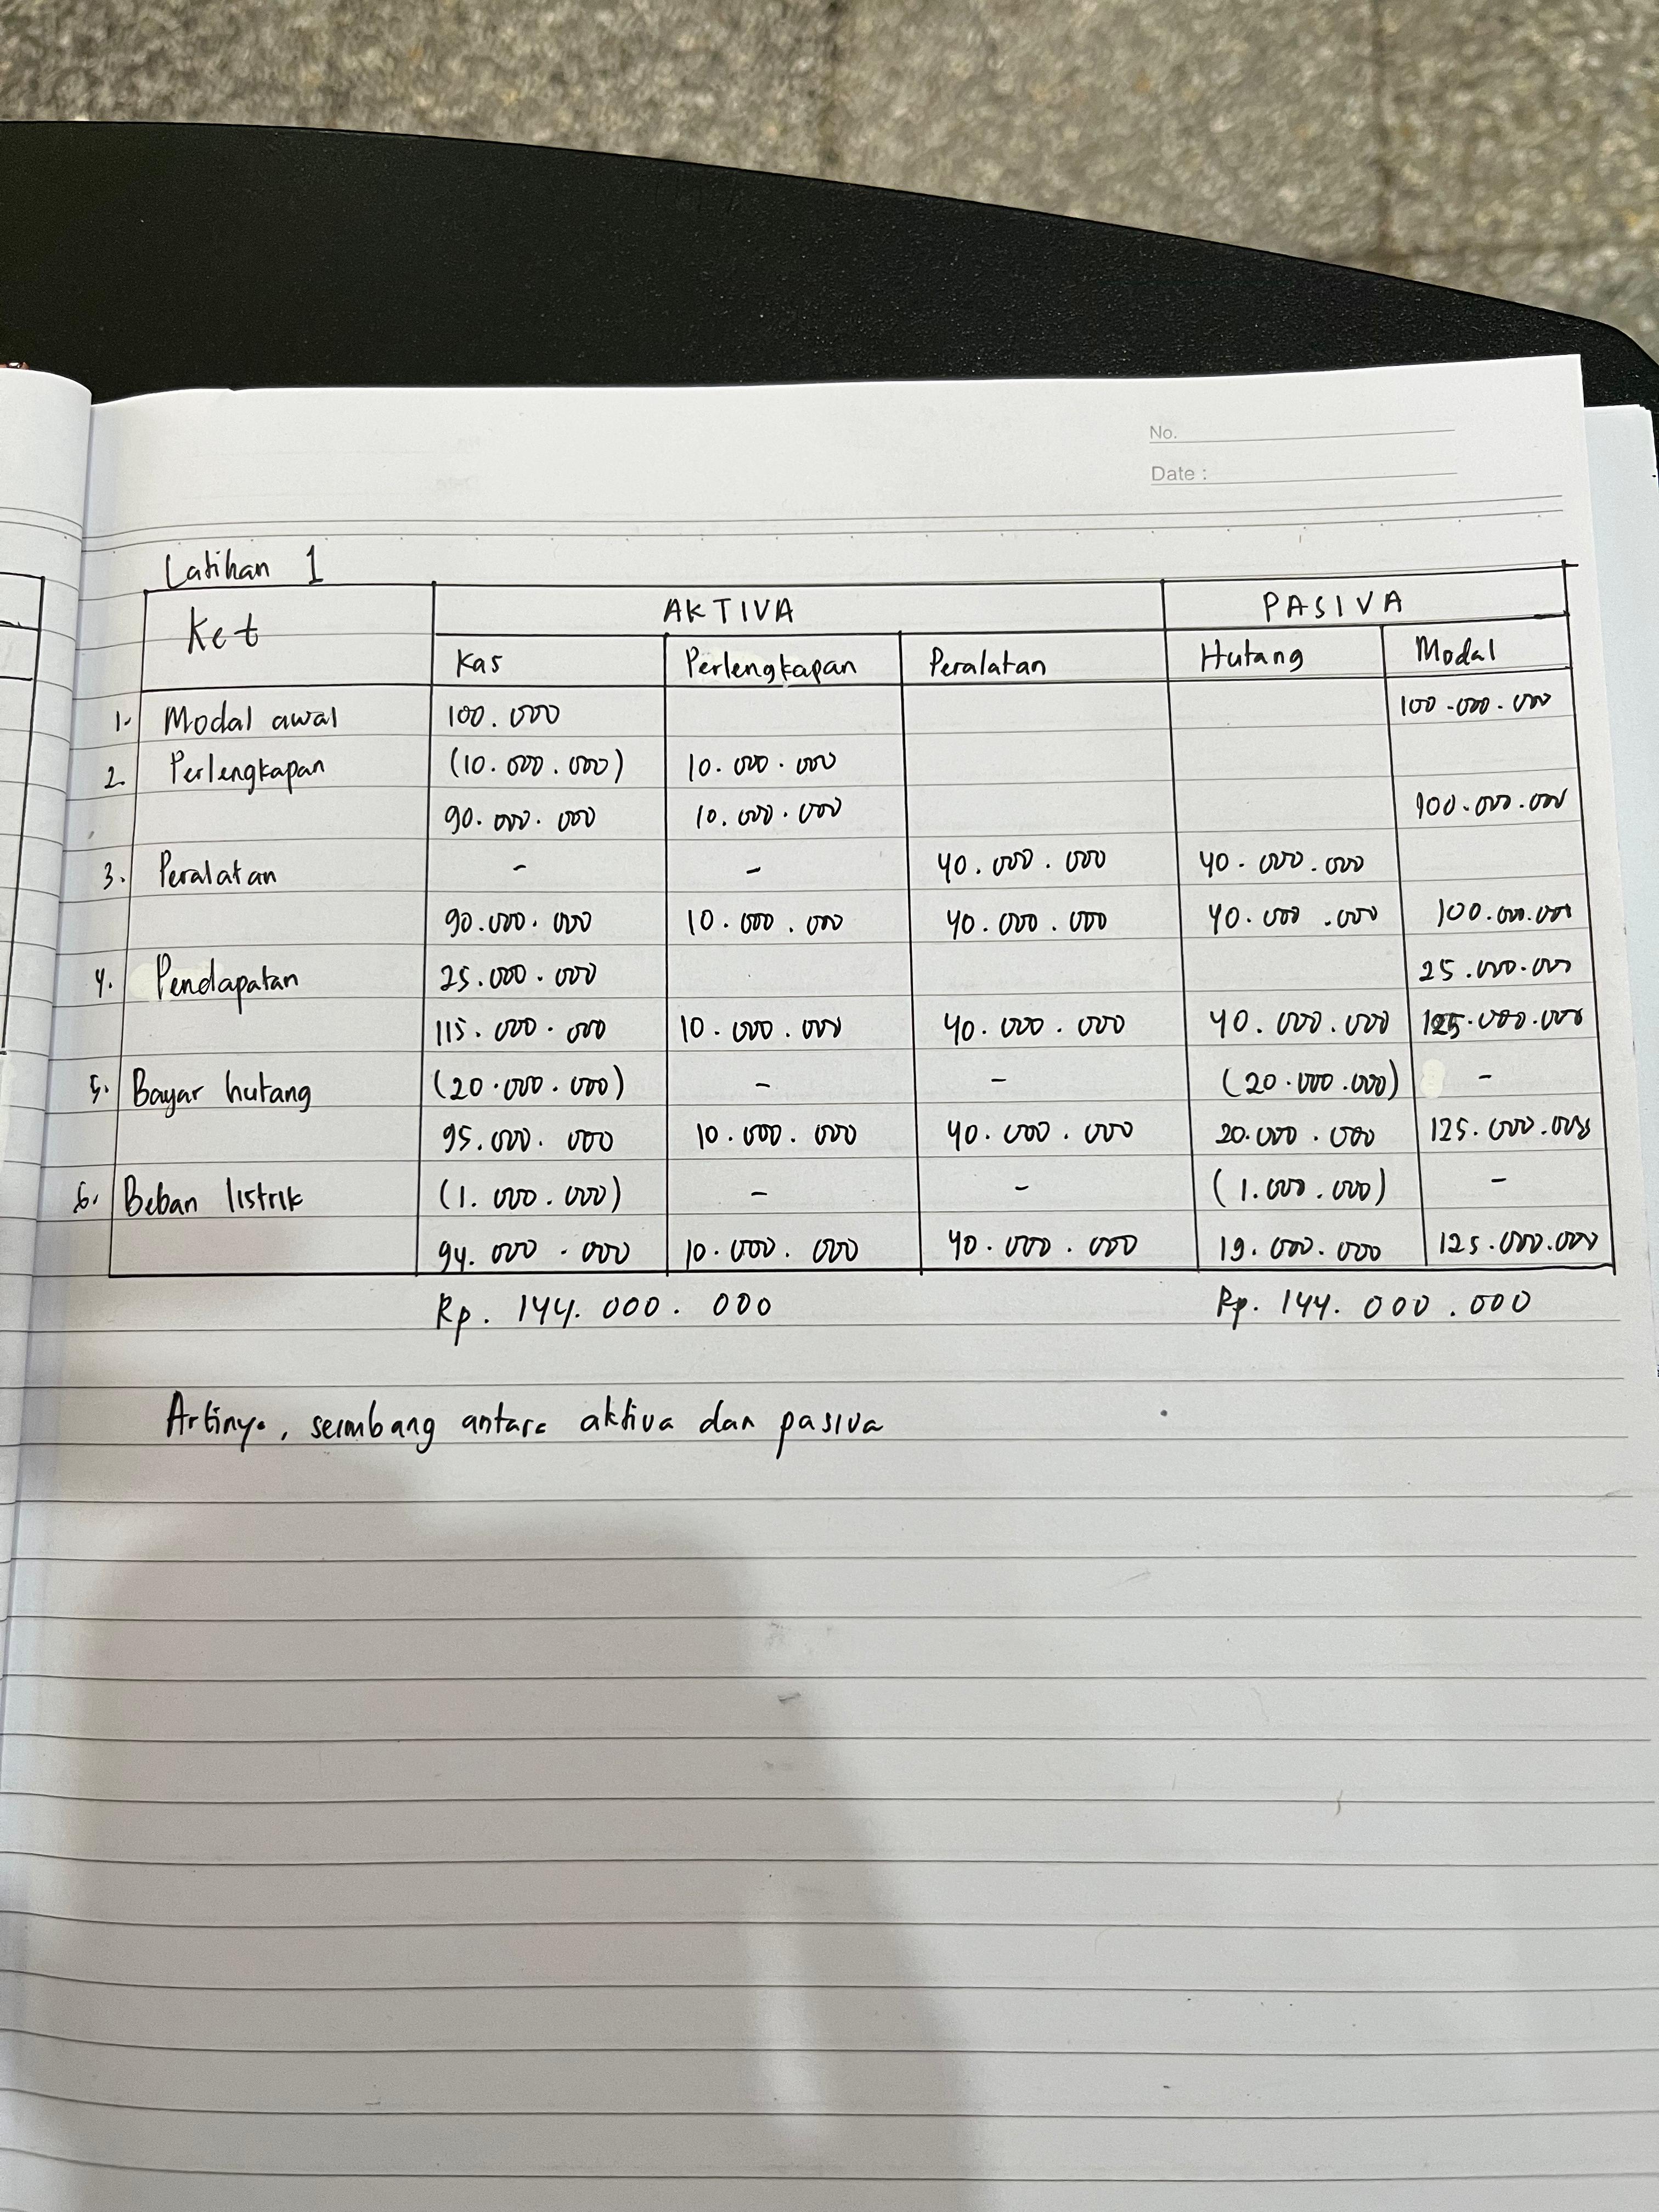 No.
Date :
Latihan 1
Ket AKTIVA PASIVA
Kas Perlengkapan Peralatan Hutang Modal
1. Modal awal 100.000 100.000.000
2. Perlengkapan (10.000.000) 10.000.000
90.000.000 10.000.000 100.000.000
3. Peralatan - - 40.000.000 40.000.000
90.000.000 10.000.000 40.000.000 40.000.000 100.000.000
4. Pendapatan 25.000.000 25.000.000
115.000.000 10.000.000 40.000.000 40.000.000 125.000.000
5. Bayar hutang (20.000.000) - - (20.000.000) -
95.000.000 10.000.000 40.000.000 20.000.000 125.000.000
6. Beban listrik (1.000.000) - - (1.000.000) -
94.000.000 10.000.000 40.000.000 19.000.000 125.000.000
Rp. 144.000.000 Rp. 144.000.000
Artinya, seimbang antara aktiva dan pasiva